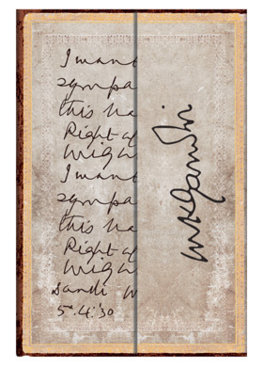 I want
sympa
this ba
Right of
Migh
I want
sympa
this ba
Right of
Migh
Sandi M
5.4.'30
MKGandhi